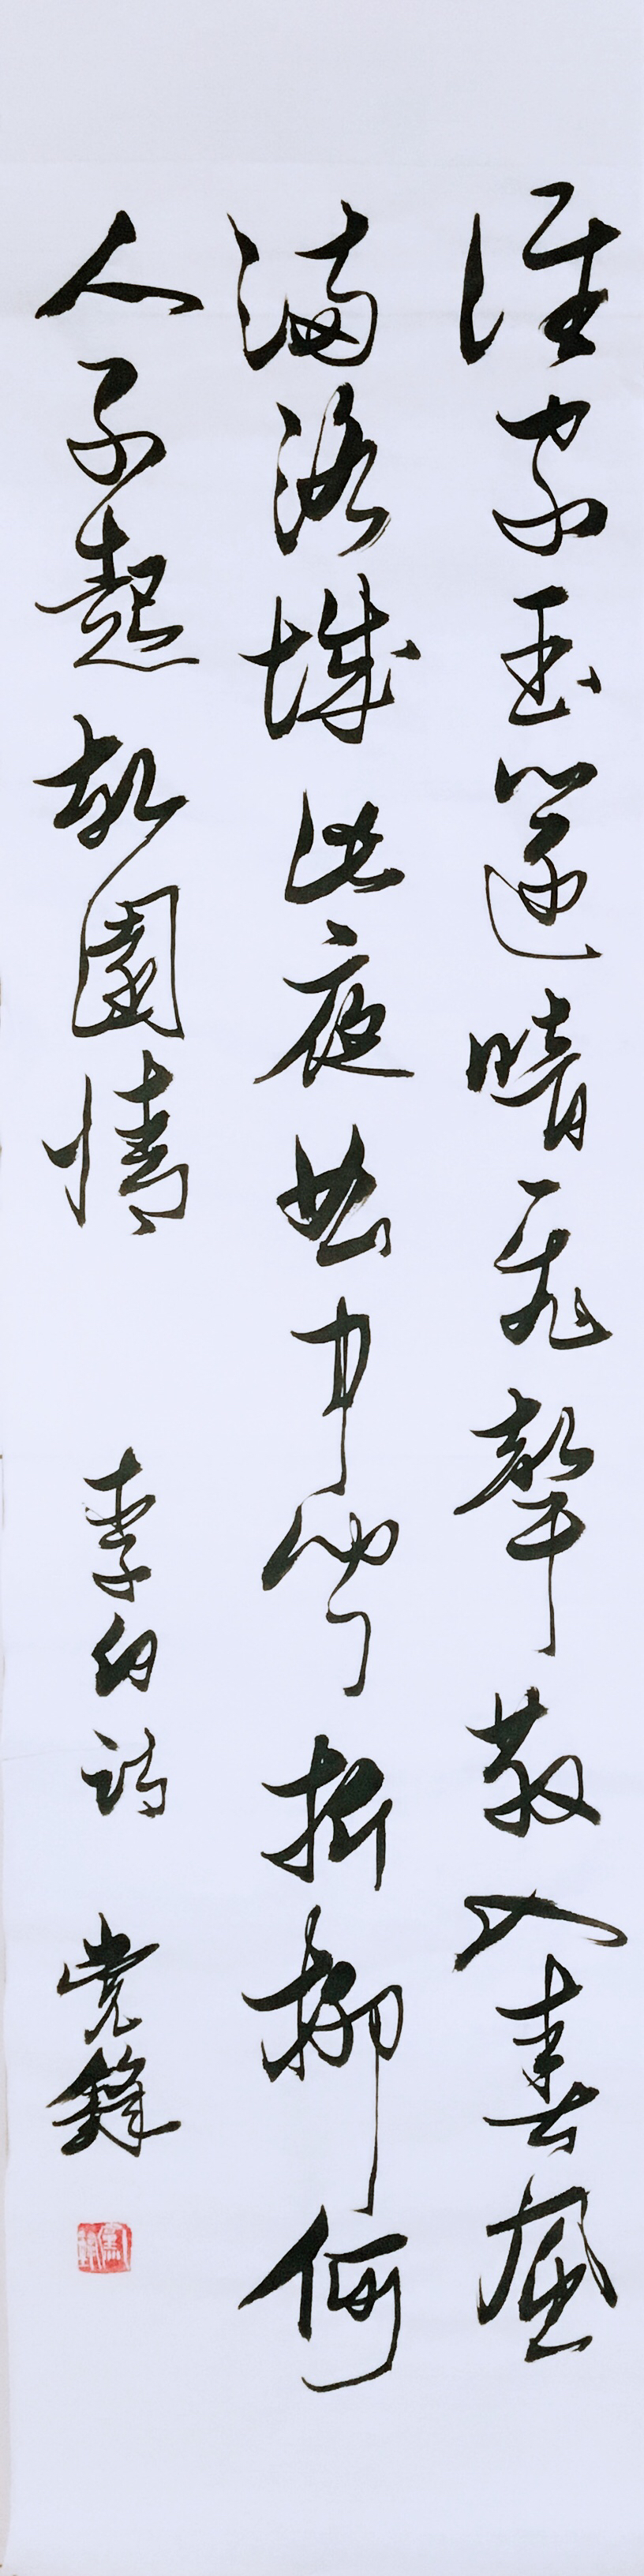 誰家玉篴暗飛聲散入春風
滿洛城此夜曲中聞折柳何
人不起故園情
李白詩
党鋒